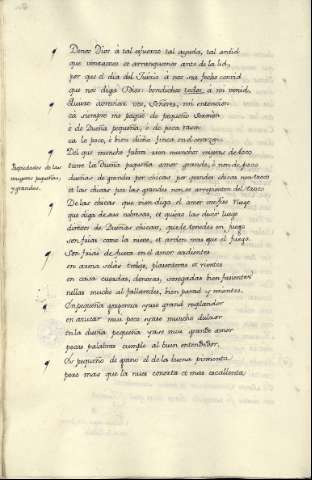 Denos Dios á tal esfuerzo tal ayuda, tal ardid
que venzamos et arranquemos ante de la lid,
por que el dia del Juicio á nos sea fecho convid
que nos diga Dios: bendichos todos á mi venid.
Quiero abreviar vos, Señores, mi
ca siempre me pagué de pequeño Sermón
é de Dueña pequeña, é de poca razon
ca lo poco, é bien dicho finca en el corazon.
Propiedades de las
mugeres pequeñas,
y grandes.
Del que mucho fabra rien muchos
tiene la Dueña pequeña amor grande, é non de poco
dueñas de grandes por chicas, por grandes chicas non troco
et las chicas por las grandes non se arrepienten del troco.
De las chicas que bien diga el amor me fizo ruego
que diga de sus noblezas, et quiero las decir luego
direvos de Dueñas chicas, que lo tenedes en juego
son frias como la nieve, et arden mas que el fuego.
Son frias de fuera en el amor ardientes
en cama solaz trebejo, placenteras et rientes
en casa cuerdas, donosas, sosegadas bien facientes
mucho al fallaredes, bien parad y mientes.
En pequeña yace grand resplandor
en azucar muy poco yace mucho dulzor
en la dueña pequeña yace muy grande amor
pocas palabras cumple al buen entendedor.
Es pequeño de grano el de la buena pimienta
pero mas que la nues conorta et mas escallenta